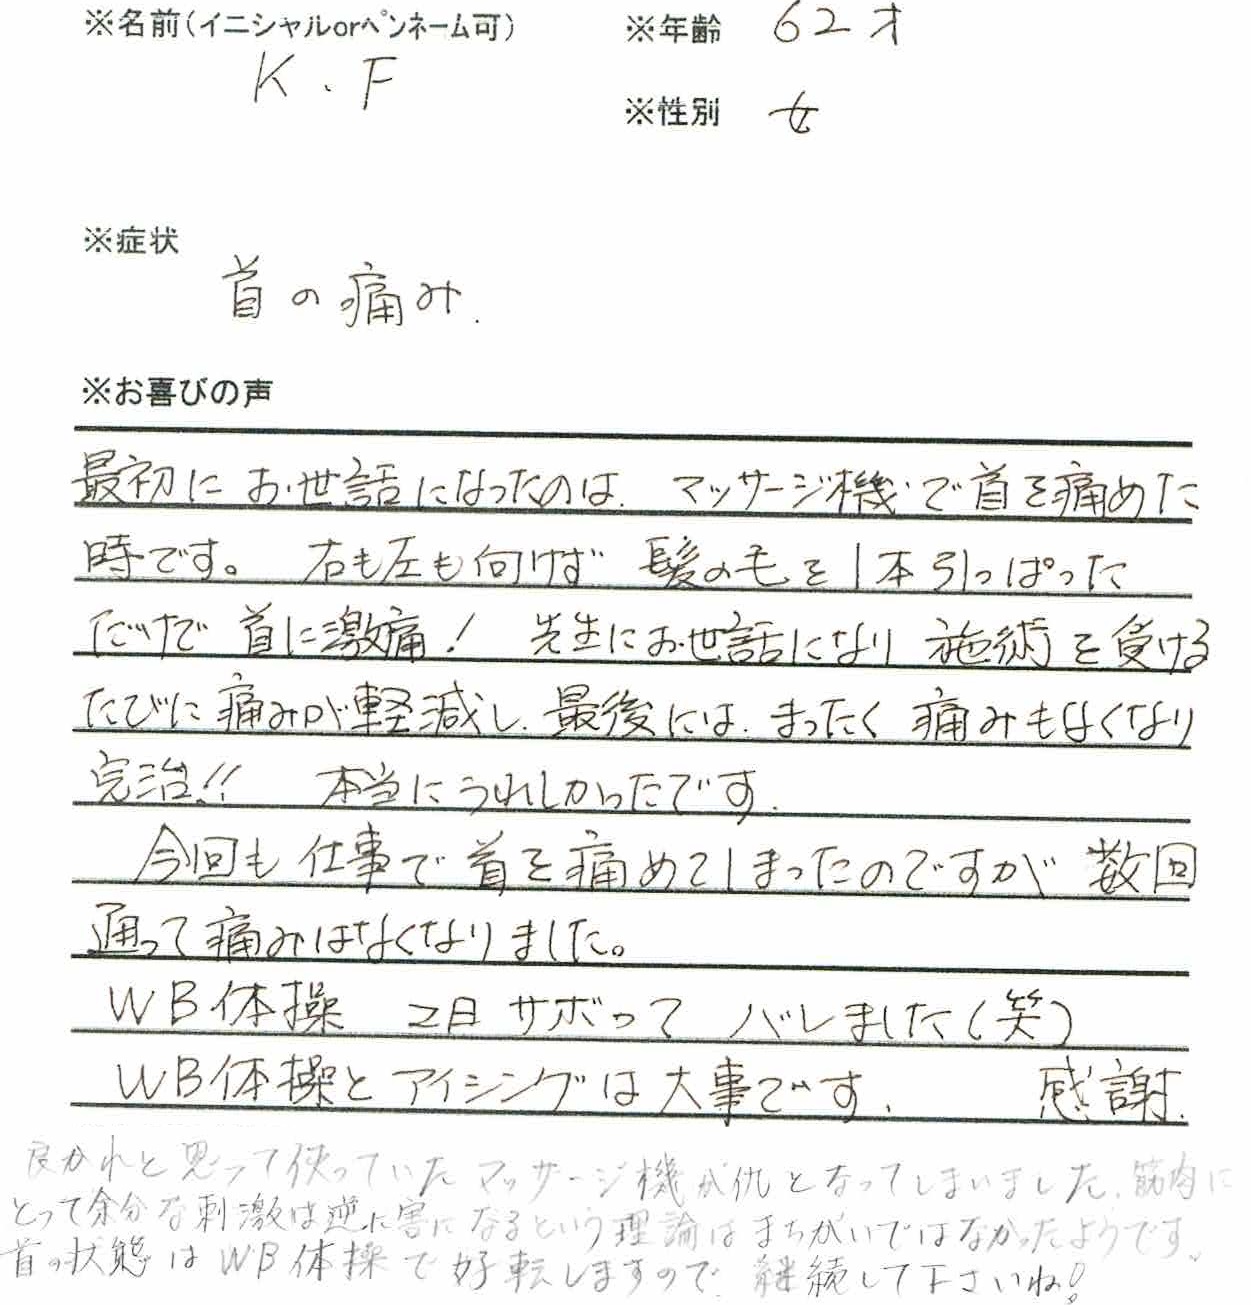 ※名前(イニシャルorペンネーム可)
K.F
※年齢 62才
※性別 女
※症状
首の痛み.
※お喜びの声
最初にお世話になったのは、マッサージ機で首を痛めた
時です。 右も左も向けず 髪の毛を1本引っぱった
だけで 首に激痛! 先生にお世話になり 施術を受ける
たびに痛みが軽減し、最後には、まったく 痛みもなくなり
完治!! 本当にうれしかったです.
今回も仕事で首を痛めてしまったのですが 数回
通って痛みはなくなりました。
WB体操 2日サボって バレました(笑)
WB体操とアイシングは大事です. 感謝.
良かれと思って使っていたマッサージ機が仇となってしまいました。筋肉に
とって余分な刺激は逆に害になるという理論はまちがいではなかったようです。
首の状態はWB体操で好転しますので、継続して下さいね!